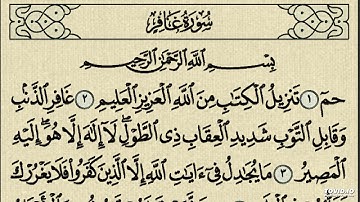 سُورَةُ غَافِرٍ
بِسْمِ اللَّهِ الرَّحْمَٰنِ الرَّحِيمِ
حمٓ ١ تَنزِيلُ الْكِتَٰبِ مِنَ اللَّهِ الْعَزِيزِ الْعَلِيمِ ٢ غَافِرِ الذَّنۢبِ
وَقَابِلِ التَّوْبِ شَدِيدِ الْعِقَابِ ذِى الطَّوْلِ ۖ لَآ إِلَٰهَ إِلَّا هُوَ ۖ إِلَيْهِ
الْمَصِيرُ ٣ مَا يُجَٰدِلُ فِىٓ ءَايَٰتِ اللَّهِ إِلَّا الَّذِينَ كَفَرُوا۟ فَلَا يَغْرُرْكَ
TOVID.IO